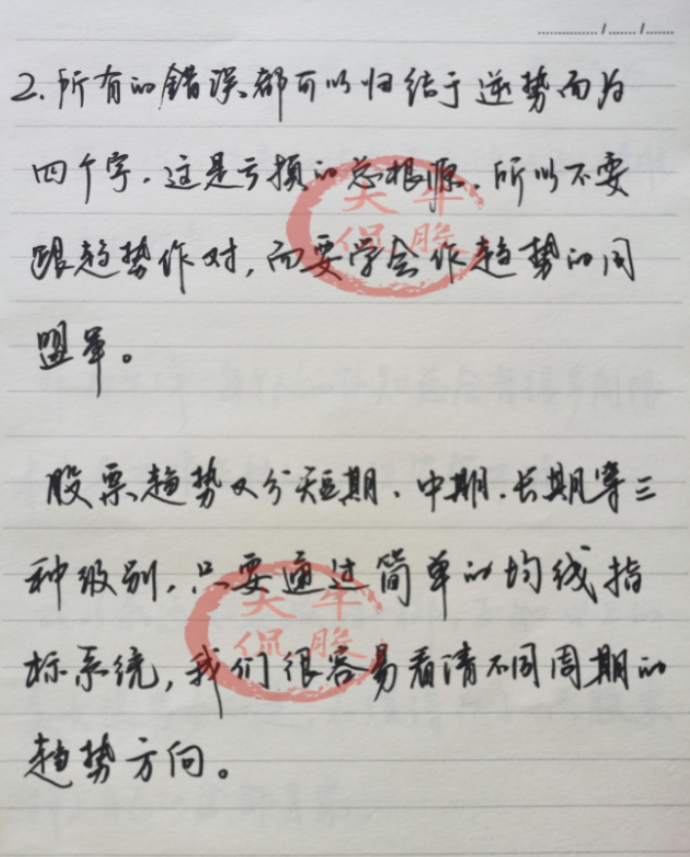 2.所有的错误都可以归结于逆势而为
四个字.这是亏损的总根源.所以不要
跟趋势作对,而要学会作趋势的同
盟军。
股票趋势又分短期、中期.长期等三
种级别.只要通过简单的均线指
标系统,我们很容易看清不同周期的
趋势方向。
牛
侃股
牛
侃股